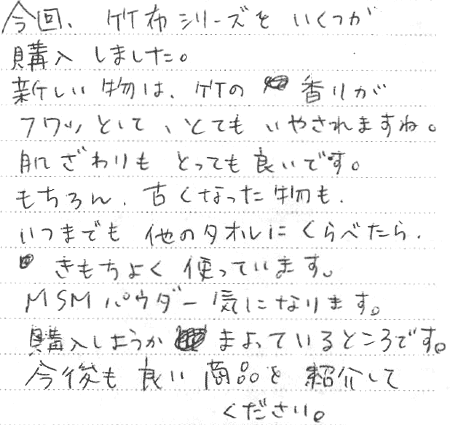 今回、竹布シリーズを いくつか
購入 しました。
新しい物は、竹の 香りが
フワッ として、とても いやされますね。
肌ざわりも とっても 良いです。
もちろん、古くなった物も、
いつまでも 他のタオルに くらべたら、
きもちよく 使っています。
MSMパウダー 気になります。
購入しようか まよっているところです。
今後も 良い 商品を 紹介して
ください。